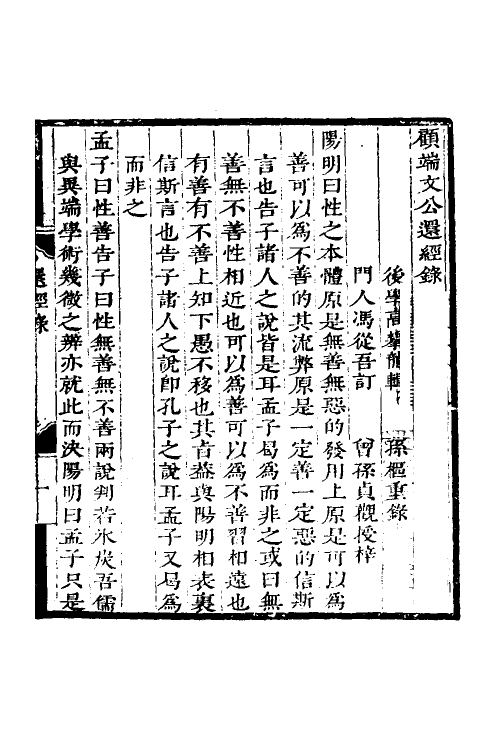 顧端文公還經錄
後學高攀龍輯
孫樞重錄
門人馮從吾訂
曾孫貞觀授梓
陽明曰性之本體原是無善無惡的發用上原是可以爲
善可以爲不善的其流弊原是一定善一定惡的信斯
言也告子諸人之說皆是耳孟子曷爲而非之或曰無
善無不善性相近也可以爲善可以爲不善習相遠也
有善有不善上知下愚不移也其旨蓋與陽明相表裏
信斯言也告子諸人之說卽孔子之說耳孟子又曷爲
而非之
孟子曰性善告子曰性無善無不善兩說判若氷炭吾儒
與異端學術幾微之辨亦就此而決陽明曰孟子只是
還經錄
一